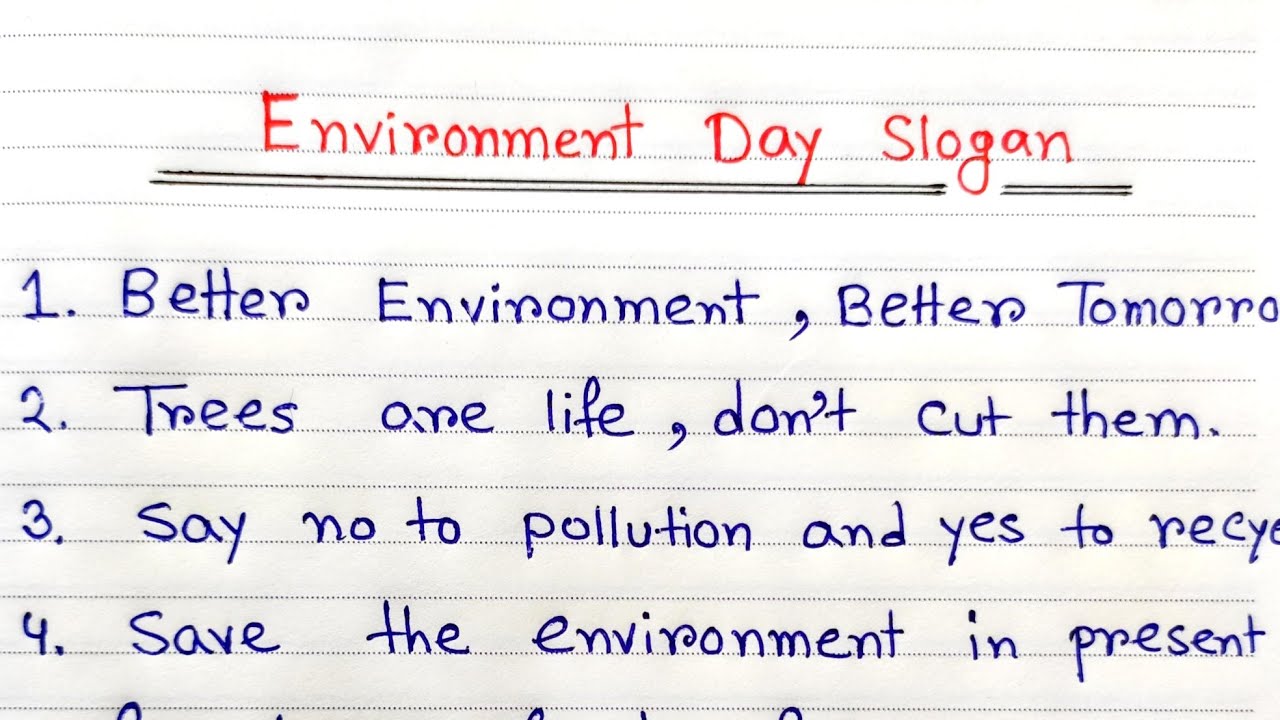 Environment Day Slogan
1. Better Environment, Better Tomorro
2. Trees are life, don't cut them.
3. Say no to pollution and yes to recyc
4. Save the environment in present